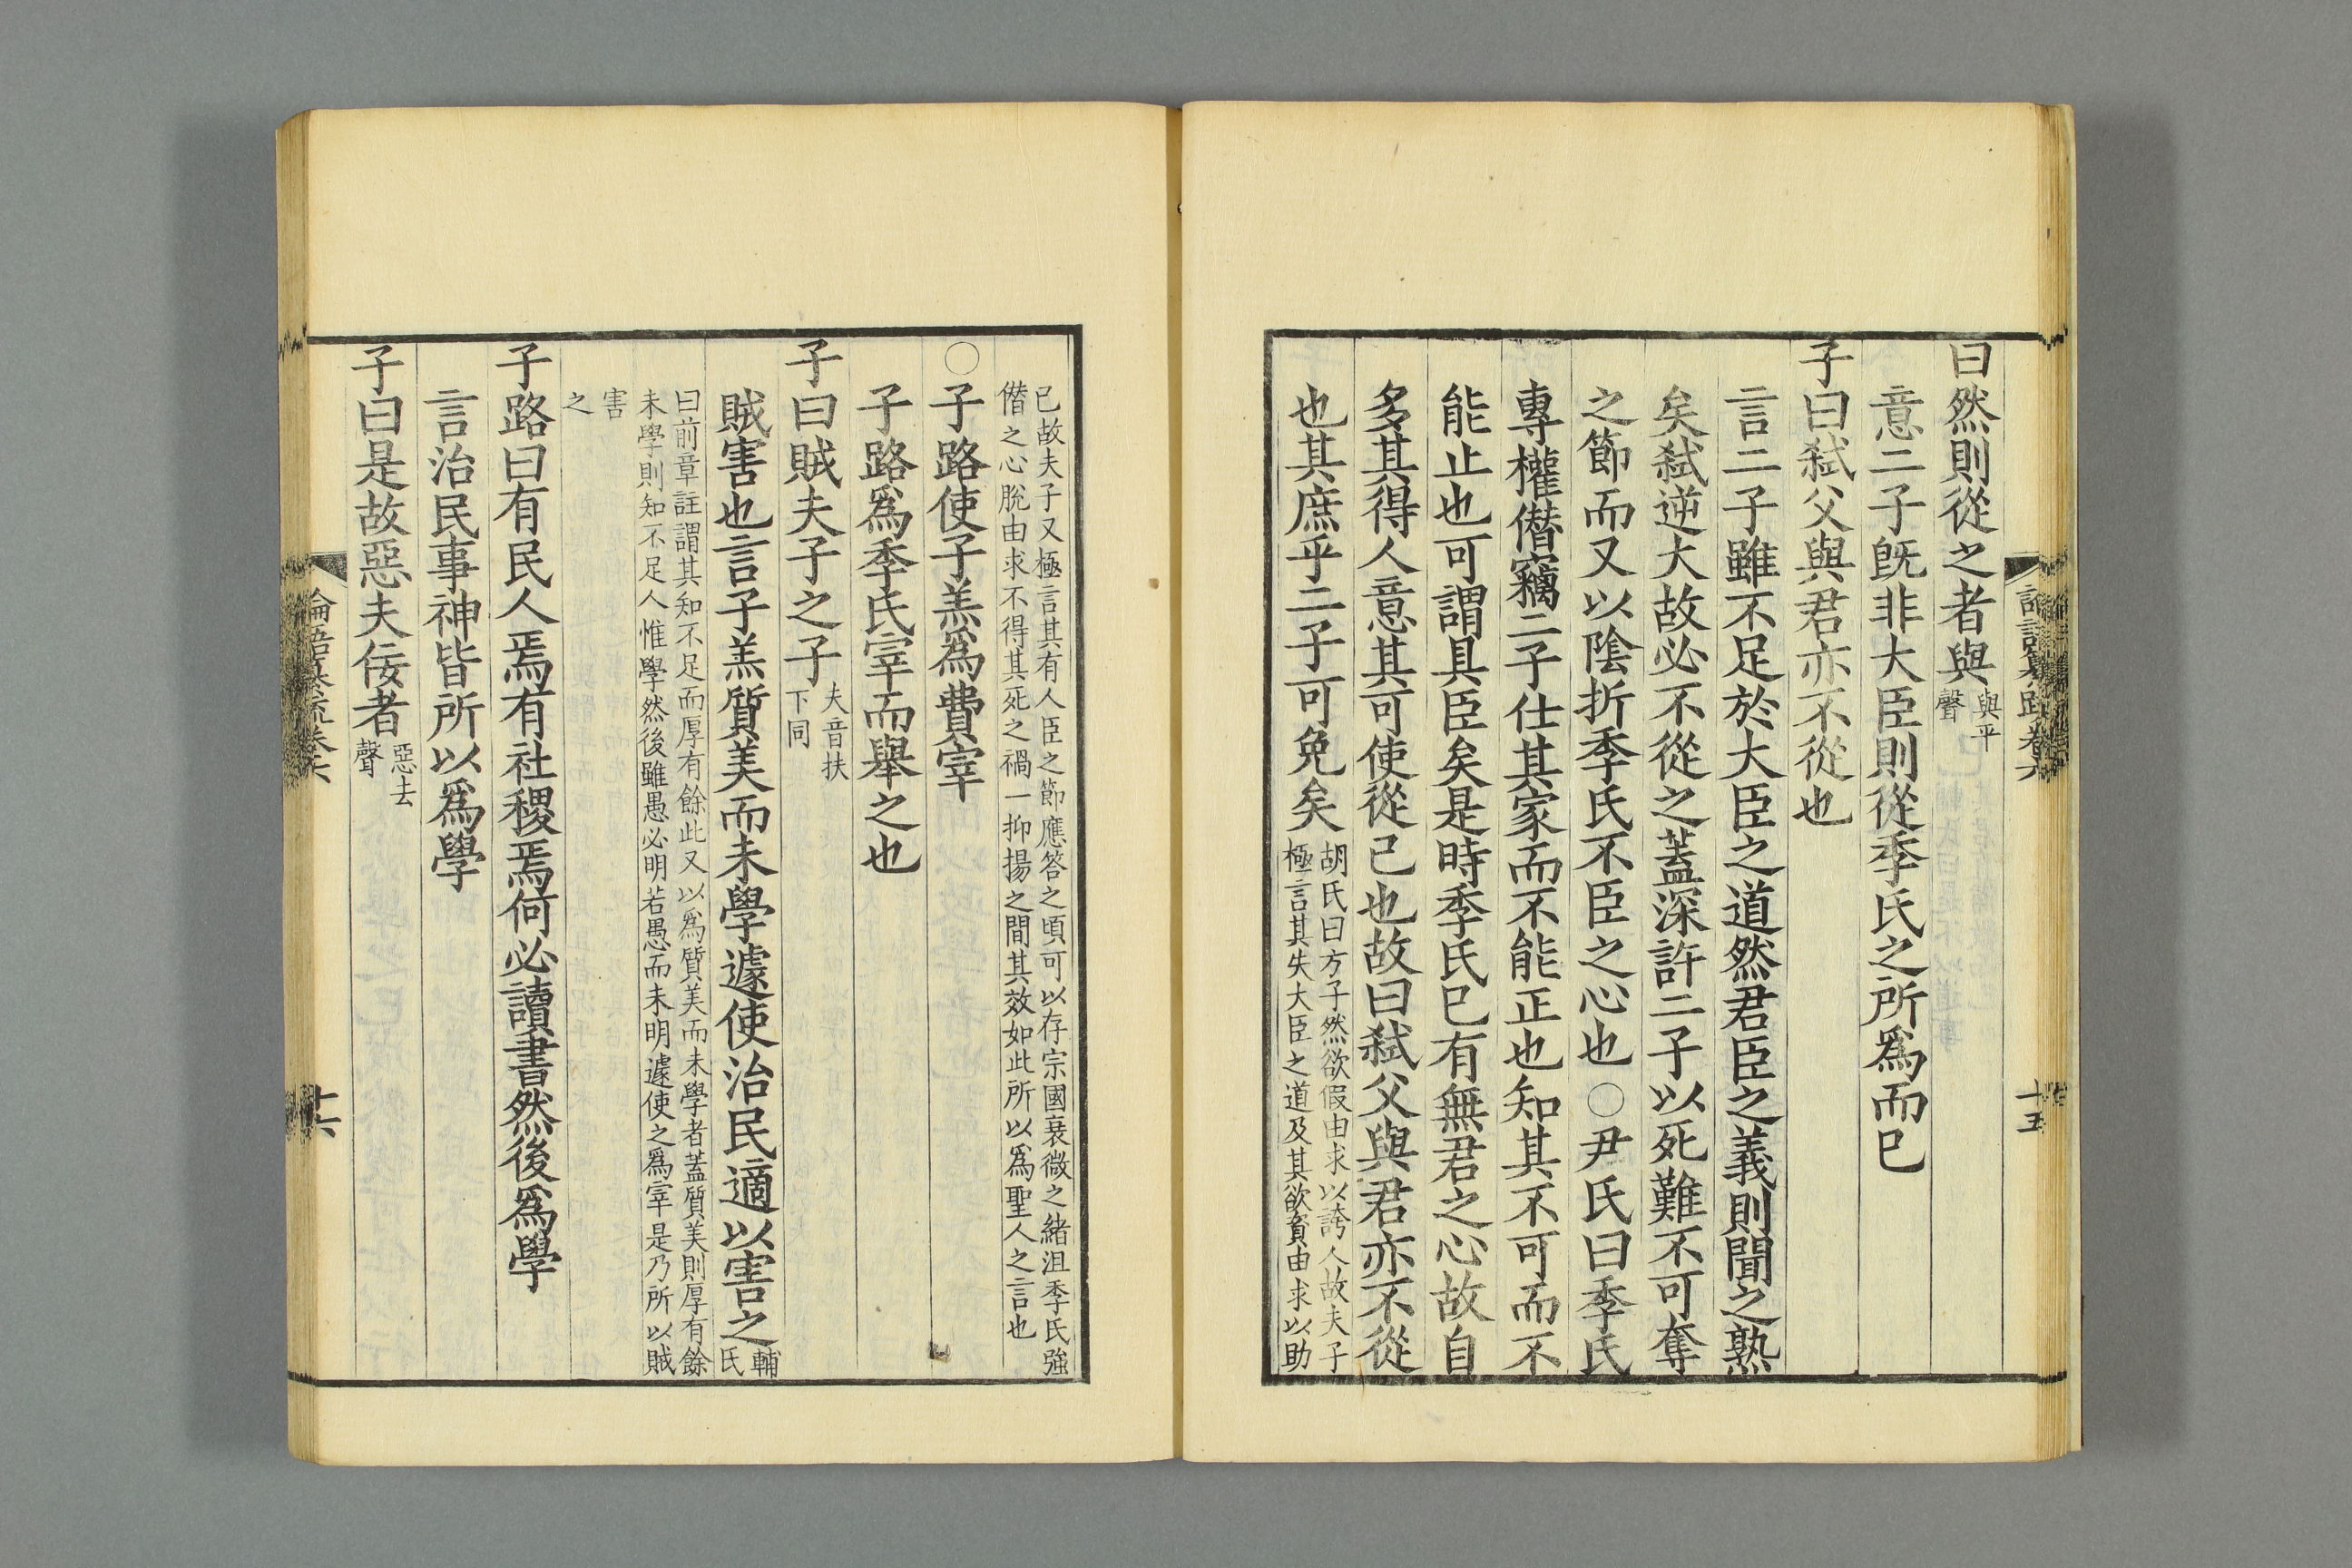 曰然則從之者與與平聲
意二子旣非大臣則從季氏之所爲而已
子曰弑父與君亦不從也
言二子雖不足於大臣之道然君臣之義則聞之熟
矣弑逆大故必不從之蓋深許二子以死難不可奪
之節而又以陰折季氏不臣之心也○尹氏曰季氏
專權僭竊二子仕其家而不能正也知其不可而不
能止也可謂具臣矣是時季氏已有無君之心故自
多其得人意其可使從己也故曰弑父與君亦不從
也其庶乎二子可免矣
胡氏曰方子然欲假由求以誇人故夫子
極言其失大臣之道及其欲資由求以助
十五
已故夫子又極言其有人臣之節應答之頃可以存宗國衰微之緒沮季氏強
僭之心脫由求不得其死之禍一抑揚之間其效如此所以爲聖人之言也
○子路使子羔爲費宰
子路爲季氏宰而舉之也
子曰賊夫人之子夫音扶下同
賊害也言子羔質美而未學遽使治民適以害之
輔氏
曰前章註謂其知不足而厚有餘此又以爲質美而未學者蓋質美則厚有餘
未學則知不足人惟學然後雖愚必明若愚而未明遽使之爲宰是乃所以賊
害
之
子路曰有民人焉有社稷焉何必讀書然後爲學
言治民事神皆所以爲學
子曰是故惡夫佞者惡去聲
論語纂疏卷六
十六